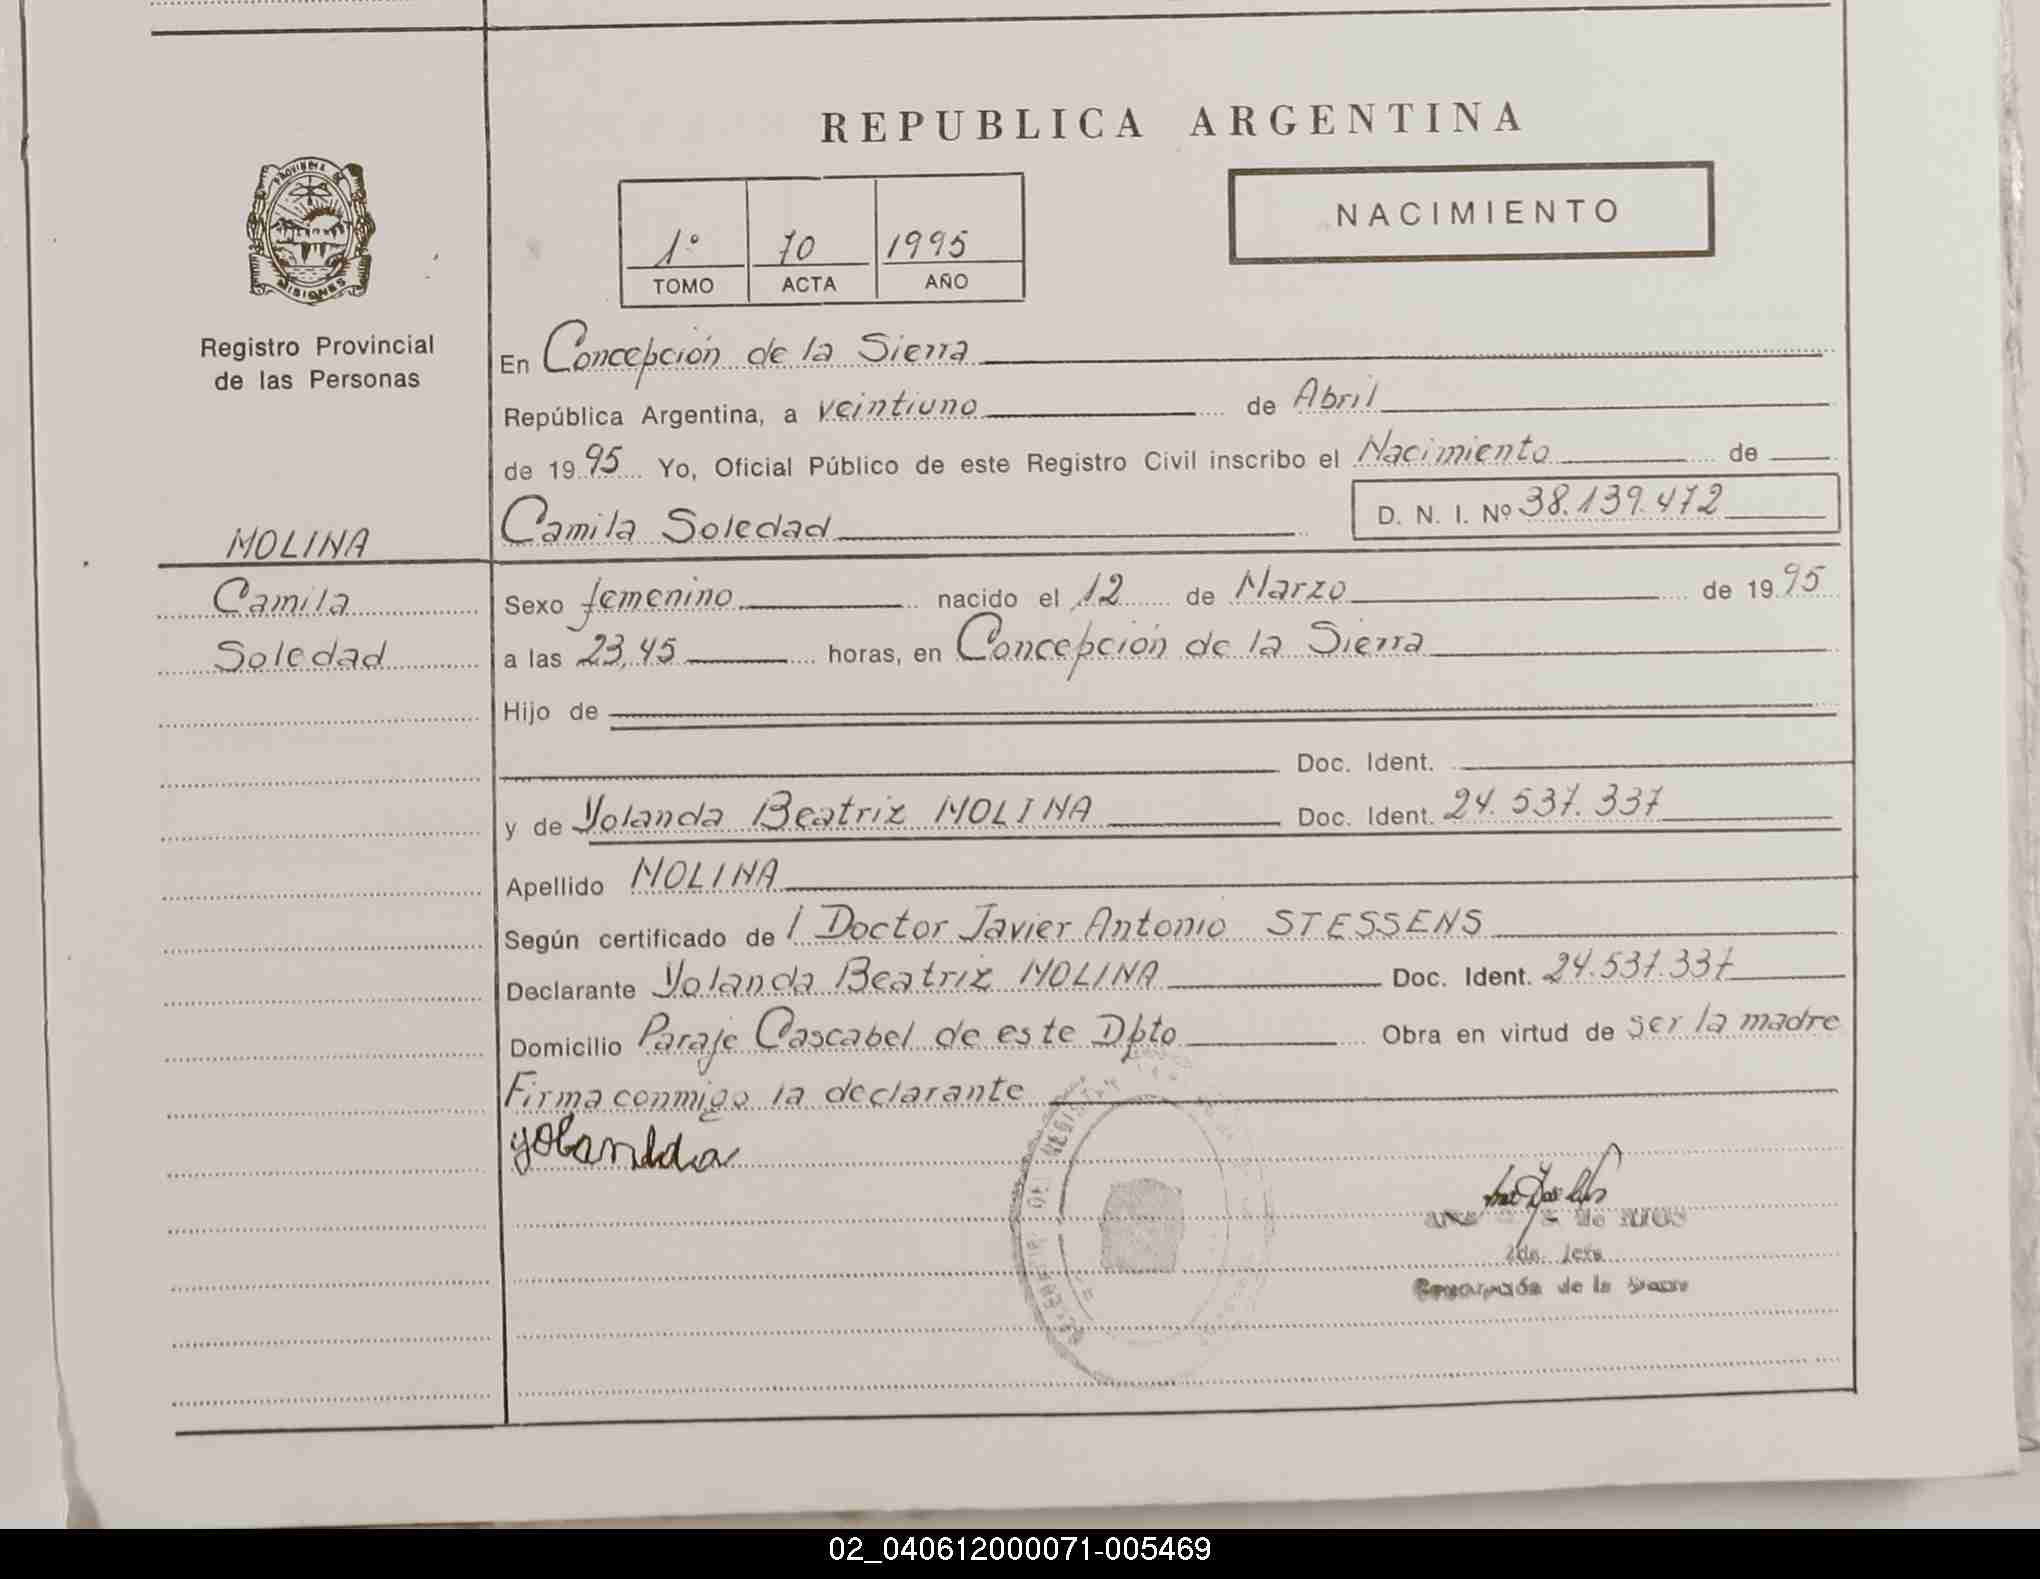 REPUBLICA ARGENTINA
NACIMIENTO
1º 70 1995
TOMO ACTA AÑO
PROVINCIA DE
MISIONES
Registro Provincial
de las Personas
MOLINA
Camila
Soledad
En Concepción de la Sierra
República Argentina, a veintiuno de Abril
de 1995 Yo, Oficial Público de este Registro Civil inscribo el Nacimiento de
Camila Soledad D. N. I. Nº 38.139.472
Sexo femenino nacido el 12 de Marzo de 1995
a las 23,45 horas, en Concepción de la Sierra
Hijo de
Doc. Ident.
y de Yolanda Beatriz MOLINA Doc. Ident. 24.537.337
Apellido MOLINA
Según certificado de l Doctor Javier Antonio STESSENS
Declarante Yolanda Beatriz MOLINA Doc. Ident. 24.537.337
Domicilio Paraje Cascabel de este Dpto Obra en virtud de ser la madre
Firma conmigo la declarante
yolanda
de la
02_040612000071-005469